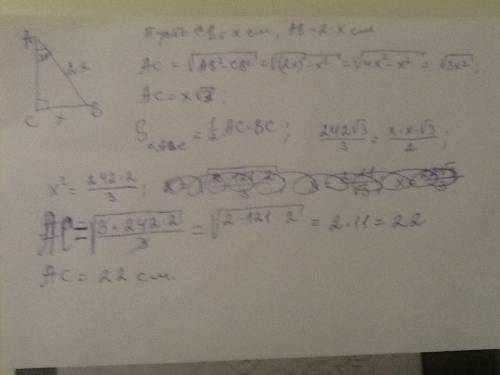 Пусть CB = x см, AB = 2·x см
A
2x
C x B
AC = √(AB²-CB²) = √((2x)²-x²) = √(4x²-x²) = √(3x²);
AC = x√3;
S△ABC = 1/2 AC·BC; 242√3/3 = x·x·√3/2;
x² = 242·2/3;
AC = √(3·242·2/3) = √(2·121·2) = 2·11 = 22
AC = 22 см